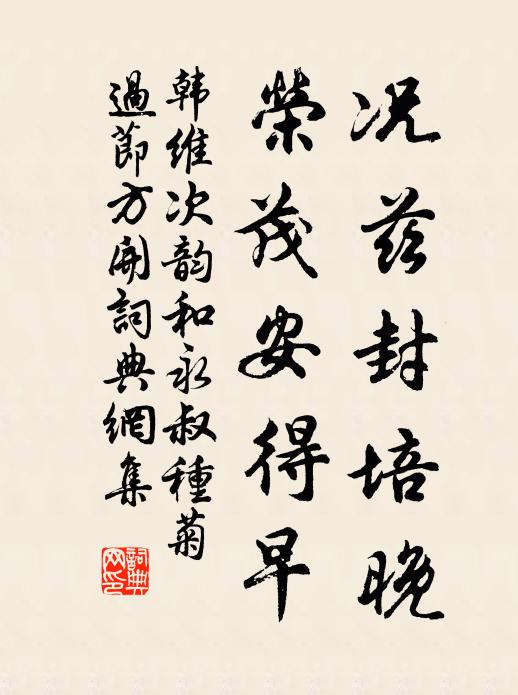 况茲封培晚
榮茂安得早
韩维次韵和永叔種菊
過節方開詞典網集
詞典网印